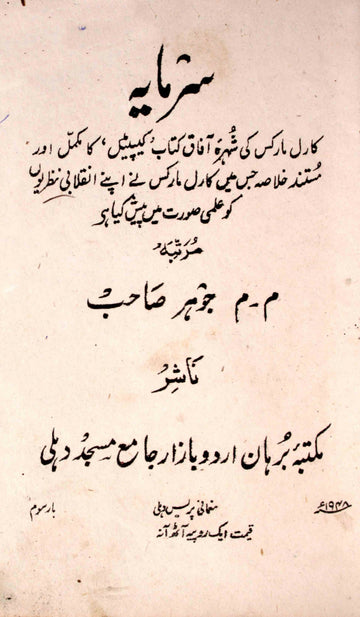 سرمایہ
کارل مارکس کی شہرۂ آفاق کتاب ’کیپیٹل‘ کا مکمل اور
مستند خلاصہ جس میں کارل مارکس نے اپنے انقلابی نظریوں
کو علمی صورت میں پیش کیا ہے
مرتبہ
م۔م جوہر صاحب
ناشر
مکتبۂ برہان اردو بازار جامع مسجد دہلی
بار سوم
پریس دہلی
۱۹۴۸ء
قیمت ایک روپیہ آٹھ آنہ